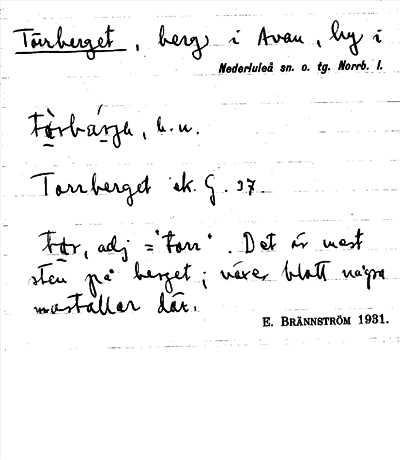 Torrberget, berg i Avan, by i
Nederluleå sn. o. tg. Norrb. l.
b.u.
Torrberget ek. G. 37
adj = "torr". Det är mest
sten på berget; växer blott några
martallar där.
E. BRÄNNSTRÖM 1931.